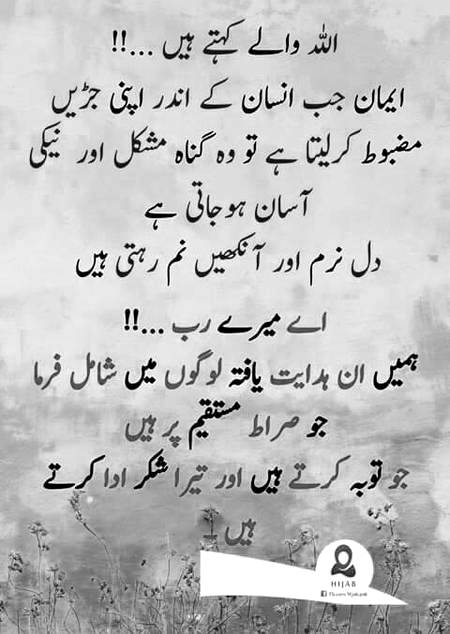 اللہ والے کہتے ہیں ...!!
ایمان جب انسان کے اندر اپنی جڑیں
مضبوط کرلیتا ہے تو وہ گناہ مشکل اور نیکی
آسان ہوجاتی ہے
دل نرم اور آنکھیں نم رہتی ہیں
اے میرے رب ...!!
ہمیں ان ہدایت یافتہ لوگوں میں شامل فرما
جو صراط مستقیم پر ہیں
جو توبہ کرتے ہیں اور تیرا شکر ادا کرتے
ہیں
HIJAB